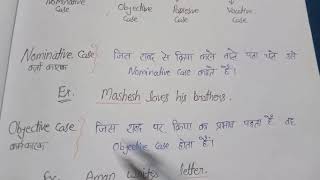 Nominative Case Objective Case Possessive Case Vocative Case
Nominative Case जिस शब्द से क्रिया करने वाले पता चले उसे
कर्ता कारक Nominative Case कहते हैं।
Ex. Mashesh loves his brothers.
Objective Case जिस शब्द पर क्रिया का प्रभाव पड़ता है वह
कर्म कारक Objective Case होता है।
Ex. Aman writes letter.